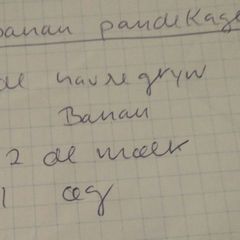 banan pandekage
dl havregryn
Banan
2 dl mælk
1 æg